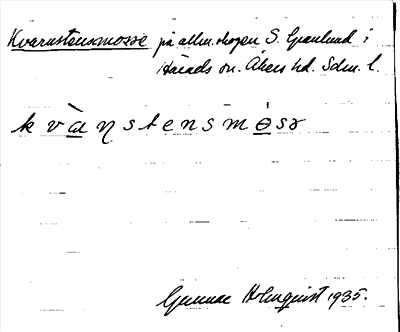 Kvarnstensmosse på allm. skogen S. Granlund i
Härads sn. Åkers hd. Sdm. l.
kvàɳstensmɵ̀sə
Gunnar Holmquist 1935.